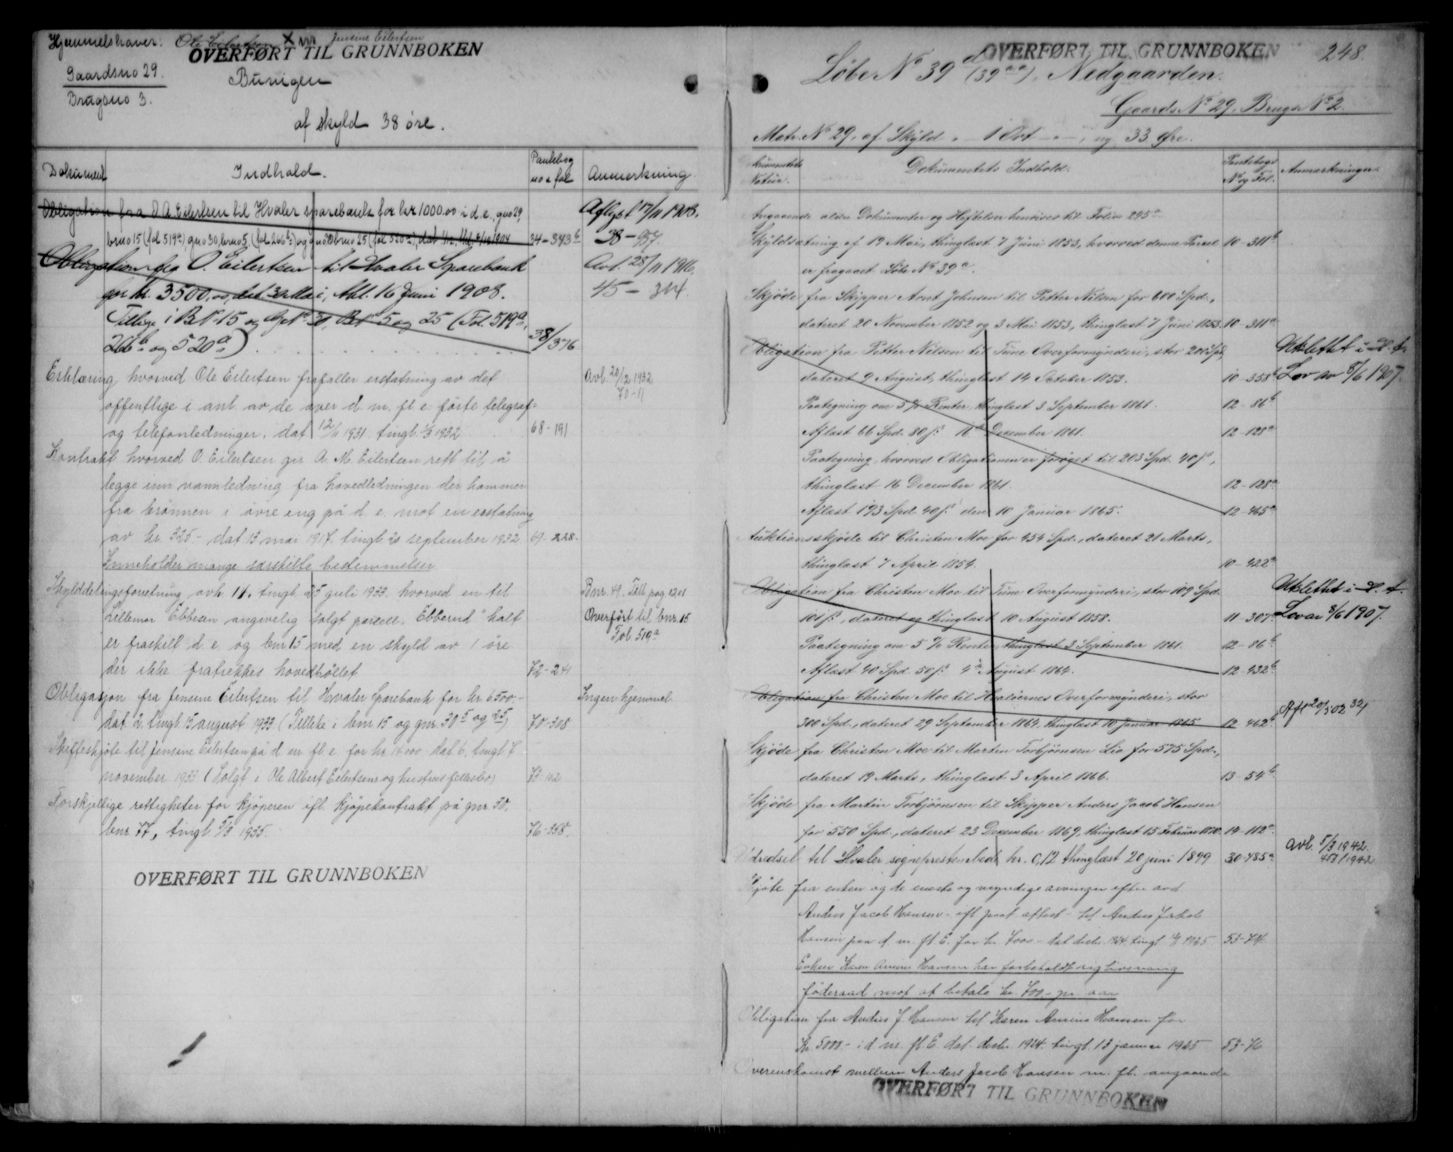 Hjemmelshaver: Ole Eilertsen X Jensine Eilertsen
OVERFØRT TIL GRUNNBOKEN
Gaardsno 29.
Brugsno 3.
af skyld 38 øre.
Dokument
Indhold.
Pantebog
no & fol
Anmerkning
Obligation fra O. A. Eilertsen til Hvaler sparebank for kr 1000.00 i d. e., gno 29
Aflyst 17/11 1908.
34-343 b
38-957.
Obligation fra O. Eilertsen til Hvaler Sparebank
Avl. 28/11 1916.
for kr. 3500.00, dat. 30 Mai, thl. 16 Juni 1908.
45-314.
Tillige i B.No 15 og Gno 30, B.No 5 og 25 (Fol. 519 a,
266 b og 520 a)
38/376
Erklæring, hvorved Ole Eilertsen frafaller erstatning av det
offentlige i anl. av de over d. m. fl. e. førte telegraf-
og telefonledninger. dat 1931. tingl. 1932
68-191
Kontrakt hvorved O. Eilertsen gir A. M. Eilertsen rett til å
legge inn vannledning fra hovedledningen der kommer
fra brønnen i øvre eng på d. e. mot en erstatning
av kr. 325- dat 13 mai 1917. tingl. 20 september 1932
69-228-
Inneholder mange særskilte bestemmelser
Skylddelingsforretning avh. 11, tingl. 25 juli 1933. hvorved en til
Bnr. 49.
Lillemor Ebbesen angivelig solgt parsell "Ebberud" kalt
Overført til bnr. 15
er fraskilt d. e. og bnr 15 med en skyld av 1 øre
Fol 519 a
der ikke fratrekkes hovedbølet
72-241
Obligasjon fra Jensine Eilertsen til Hvaler Sparebank for kr 6500-
Ingen hjemmel
dat. tingl. august 1933 (Tillike i bnr 15 og gnr 30, 5 og 25)
70-308
Skifteskjøte til Jensine Eilertsen på d. en. fl. e. for kr. dat. 6, tingl. 8
november 1933 (Solgt i Ole Albert Eilertsens og hustrus fellesbo)
Forskjellige rettigheter for kjøperen ifl. kjøpekontrakt på gnr. 30,
bnr. 77, tingl. 1935.
76-358.
OVERFØRT TIL GRUNNBOKEN
OVERFØRT TIL GRUNNBOKEN
248.
Løbe No 39 d (39 a a), Nedgaarden.
Gaards No 29, Brugs No 2
Matr. No 29, af Skyld " 1 Ort " ", ny 33 Øre.
Dokumentets
Natur.
Dokumentets Indhold.
Pantebogs
No og Fol.
Anmerkninger.
Angaaende ældre Dokumenter og Heftelser henvises til Folium 245 a.
Skyldsætning af 19 Mai, thinglæst 7 Juni 1853, hvorved denne Parcel
10-311 b
er fragaaet Løbe No 39 a.
Skjøde fra Skipper Arnt Johnsen til Petter Nilsen for 600 Spd.,
dateret 20 November 1852 og 3 Mai 1853, thinglæst 7 Juni 1853.
10-311 a
Obligation fra Petter Nilsen til Tune Overformynderi, stor 201 Spd.,
Udslettet i H. t.
dateret 9 August, thinglæst 14 October 1853.
10-353 b
Lov av 8/6 1907.
Paategning om 5 % Renter, thinglæst 3 September 1861.
12-86 b
Aflæst 66 Spd. 80 ß. 16 December 1861.
12-128 a
Paategning, hvorved Obligationen er forøget til 203 Spd. 40 ß,
thinglæst 16 December 1861.
12-128 a
Aflæst 193 Spd. 40 ß den 10 Januar 1865.
12-465 a
Auktionsskjøde til Christen Moe for 454 Spd., dateret 21 Marts,
thinglæst 7 April 1854.
10-422 a
Obligation fra Christen Moe til Tune Overformynderi, stor 109 Spd.
Udslettet i H. t.
101 ß, dateret og thinglæst 10 August 1858.
11-307 a
Lov av 8/6 1907.
Paategning om 5 % Renter, thinglæst 3 September 1861.
12-86 b
Aflæst 40 Spd. 50 ß. 4 August 1864.
12-432 b
Obligation fra Christen Moe til Hvaløernes Overformynderi, stor
300 Spd., dateret 29 September 1864, thinglæst 10 Januar 1865
12-462 b
Skjøde fra Christen Moe til Morten Torbjørnsen Lio for 575 Spd.,
dateret 19 Marts, thinglæst 3 April 1866.
13-54 b
Skjøde fra Martin Torbjørnsen til Skipper Anders Jacob Hansen
for 550 Spd., dateret 23 December 1869, thinglæst 15 Februar 1870.
14-112 a
Udredsel til Hvaler sogneprestembede kr. 0,12 thinglæst 20 juni 1899
30-485 a
Avl. 5/3 1942.
Skjøte fra enken og de eneste og myndige arvinger efter avd.
Anders Jacob Hansen - ifl. prot. aflæst - til Anders Jakob
Hansen paa d. m. fl. E. for kr. 7000- dat. decbr. 1924, tingl. 1925
53-74
Enken Karen Annine Hansen har forbeholdt sig livsvarig
føderaad mot at betale kr. 700- pr. aar
Obligation fra Anders J. Hansen til Karen Annine Hansen for
kr 5000- i d. m. fl. E. dat. decbr. 1924. tingl. 13 januar 1925
53-76
Overenskomst mellem Anders Jacob Hansen m. fl. angaaende
OVERFØRT TIL GRUNNBOKEN